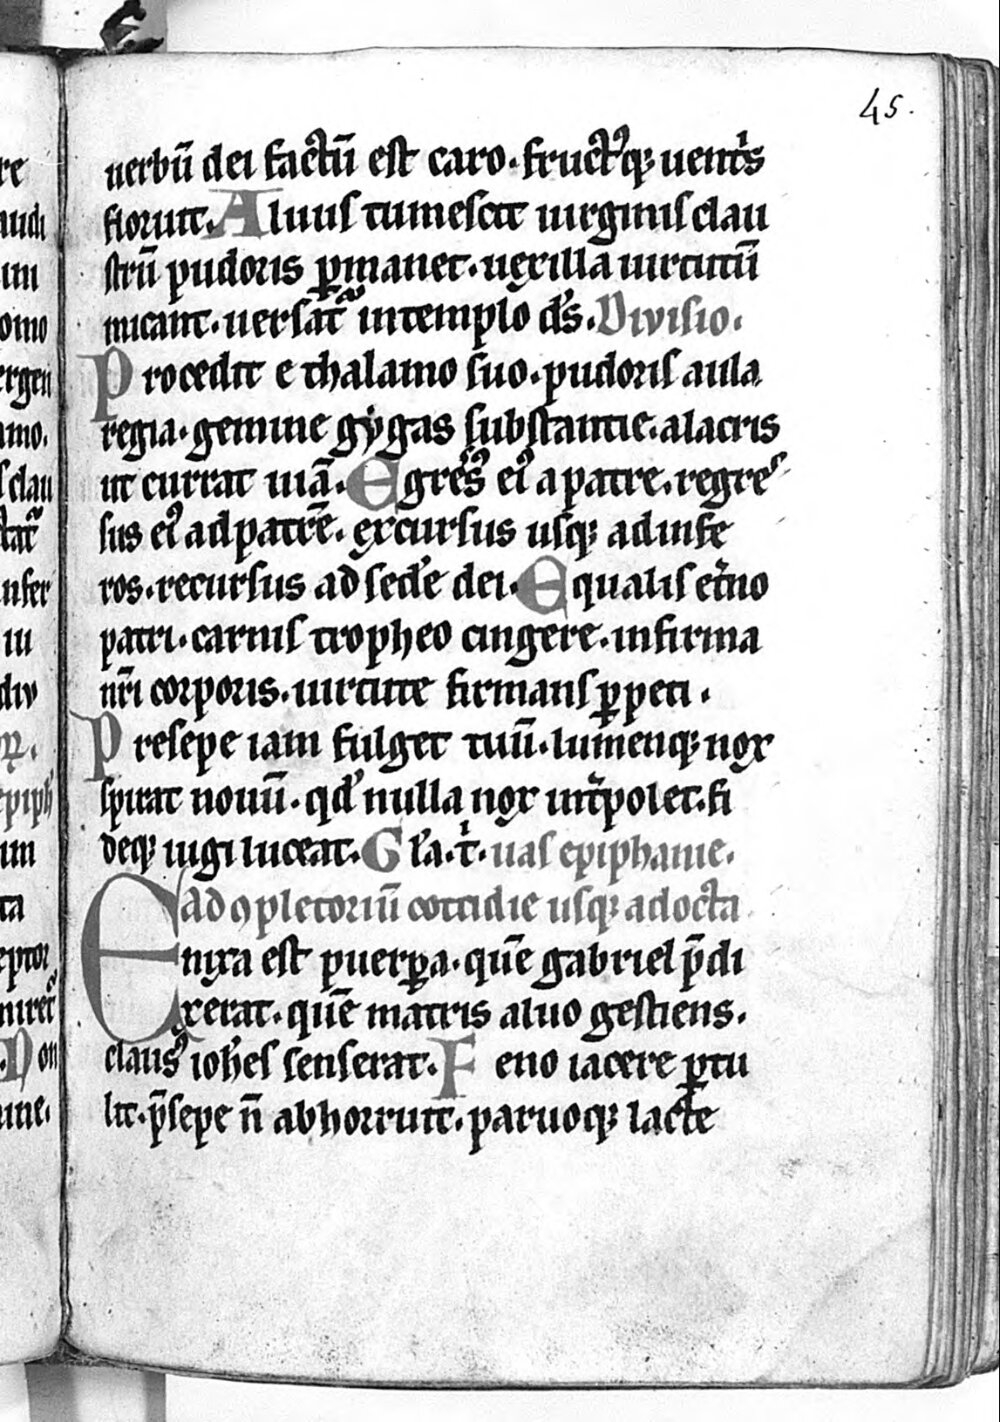 45.
uerbū dei factū est caro. fructꝰqꝫ uent̾s
floruit. Aluus tumescit uirginis clau
strū pudoris ꝑmanet. uexilla uirtutū
micant. uersat᷑ in templo d̾s. Diuisio.
Procedit e thalamo suo. pudoris aula
regia. gemine gygas substantie. alacris
ut currat uiā. Egres̾ꝰ eiꝰ a patre. regres
sus eiꝰ ad patrē. excursus usqꝫ ad infe
ros. recursus ad sedē dei. Equalis et̾no
patri. carnis tropheo cingere. infirma
nr̄i corporis. uirtute firmans ꝑpeti.
Presepe iam fulget tuū. lumenqꝫ nox
spirat nouū. qd̾ nulla nox int̾polet. fi
deqꝫ iugi luceat. Gl̾a. t̾. uas epiphanie.
ad ꝯpletoriū cottidie usqꝫ ad octa
Enixa est puerꝑa. quē gabriel p̄di
xerat. quē matris aluo gestiens.
clausꝰ ioh̄es senserat. Feno iacere ꝑtu
lit. p̄sepe n̄ abhorruit. paruoqꝫ lacte